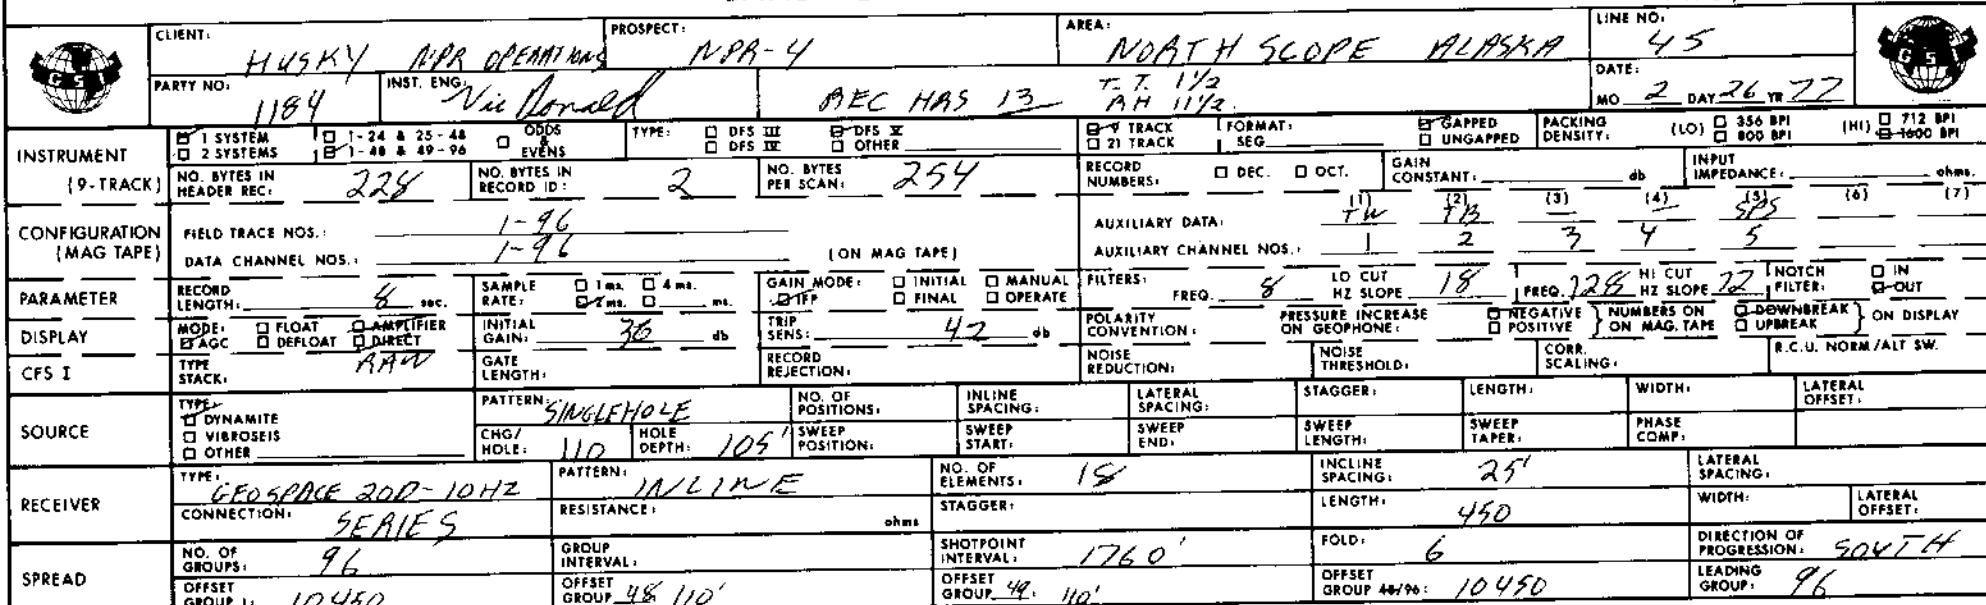 CLIENT: HUSKY NPR OPERATIONS PROSPECT: NPR-4 AREA: NORTH SCOPE ALASKA LINE NO: 45
GSI
PARTY NO: 1184 INST. ENG. Vic Ronald REC HRS 13 T.T. 1 1/2 DATE:
AH 11 1/2. MO 2 DAY 26 YR 77
GSI
INSTRUMENT (9-TRACK) 1 SYSTEM 1-24 & 25-48 ODDS & EVENS TYPE: DFS III DFS V 9 TRACK FORMAT: GAPPED PACKING DENSITY: (LO) 356 BPI (HI) 712 BPI
2 SYSTEMS 1-48 & 49-96 DFS IV OTHER 21 TRACK SEG UNGAPPED 800 BPI 1600 BPI
NO. BYTES IN HEADER REC: 228 NO. BYTES IN RECORD ID: 2 NO. BYTES PER SCAN: 254 RECORD NUMBERS: DEC. OCT. GAIN CONSTANT: db INPUT IMPEDANCE: ohms.
CONFIGURATION (MAG TAPE) (1) (2) (3) (4) (5) (6) (7)
FIELD TRACE NOS.: 1-96 AUXILIARY DATA: TW TB — — SPS
DATA CHANNEL NOS.: 1-96 (ON MAG TAPE) AUXILIARY CHANNEL NOS.: 1 2 3 4 5
PARAMETER RECORD LENGTH: 8 sec. SAMPLE RATE: 1 ms. 4 ms. 2 ms. ms. GAIN MODE: INITIAL MANUAL IFP FINAL OPERATE FILTERS: FREQ. 8 LO CUT HZ SLOPE 18 FREQ. 128 HI CUT HZ SLOPE 72 NOTCH FILTER: IN OUT
DISPLAY MODE: FLOAT AMPLIFIER AGC DEFLOAT DIRECT INITIAL GAIN: 36 db TRIP SENS: 42 db POLARITY CONVENTION: PRESSURE INCREASE ON GEOPHONE: NEGATIVE POSITIVE } NUMBERS ON ON MAG. TAPE DOWNBREAK UPBREAK } ON DISPLAY
CFS I TYPE STACK: RAW GATE LENGTH: RECORD REJECTION: NOISE REDUCTION: NOISE THRESHOLD: CORR. SCALING: R.C.U. NORM/ALT SW.
SOURCE TYPE: DYNAMITE VIBROSEIS OTHER PATTERN: SINGLEHOLE NO. OF POSITIONS: INLINE SPACING: LATERAL SPACING: STAGGER: LENGTH: WIDTH: LATERAL OFFSET:
CHG/HOLE: 110 HOLE DEPTH: 105' SWEEP POSITION: SWEEP START: SWEEP END: SWEEP LENGTH: SWEEP TAPER: PHASE COMP:
RECEIVER TYPE: GEOSPACE 20D-10HZ PATTERN: INLINE NO. OF ELEMENTS: 18 INCLINE SPACING: 25' LATERAL SPACING:
CONNECTION: SERIES RESISTANCE: ohms STAGGER: LENGTH: 450 WIDTH: LATERAL OFFSET:
SPREAD NO. OF GROUPS: 96 GROUP INTERVAL: SHOTPOINT INTERVAL: 1760' FOLD: 6 DIRECTION OF PROGRESSION: SOUTH
OFFSET GROUP 1: 10450 OFFSET GROUP 48: 110' OFFSET GROUP 49: 110' OFFSET GROUP 48/96: 10450 LEADING GROUP: 96